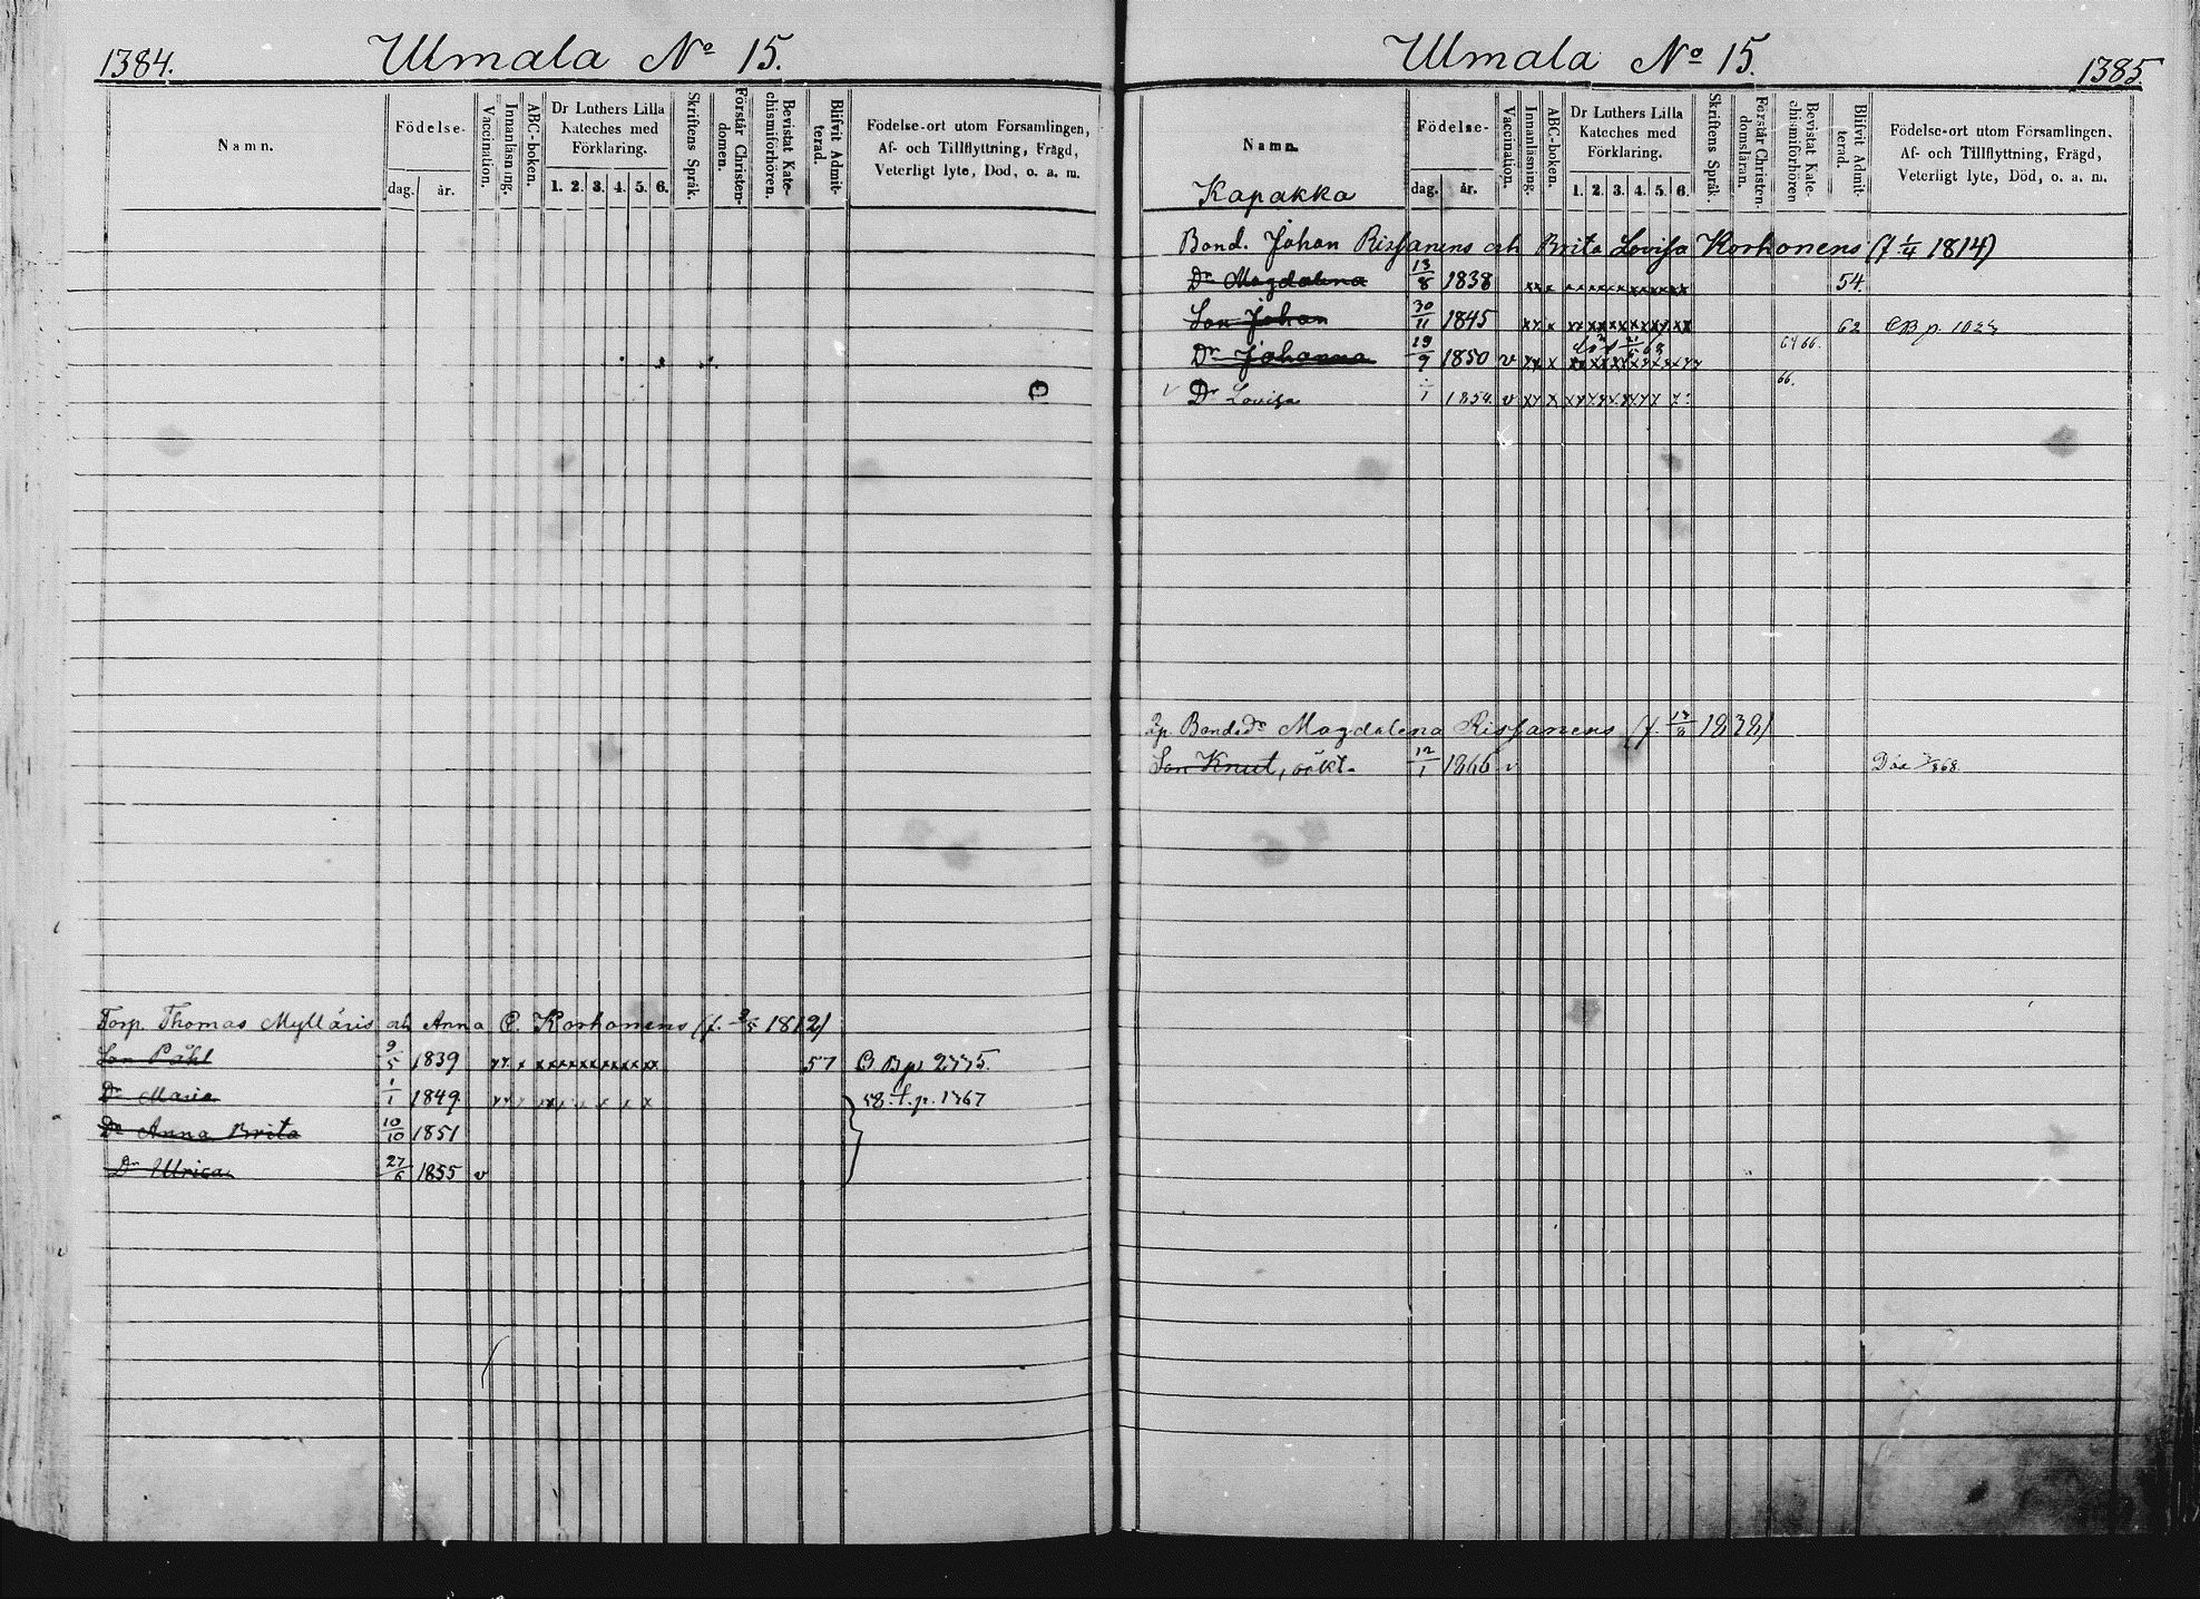 1384.
Ulmala No 15.
Namn.
Födelse-
dag.
år.
Vaccination.
Innanläsning.
ABC-boken.
Dr Luthers Lilla
Kateches med
Förklaring.
1. 2. 3. 4. 5. 6.
Skriftens Språk.
Förstår Christen-
domen.
Bevistat Kate-
chismiförhören.
Blifvit Admit-
terad.
Födelse-ort utom Församlingen,
Af- och Tillflyttning, Frägd,
Veterligt lyte, Död, o. a. m.
Torp. Thomas Mylläris och Anna C. Korhonens (f. 1812)
Son Påhl 9/5 1839 xx x xxxxxxxxxxx 57 C B p. 2775.
Dr Maria 1/1 1849 58. f. p. 1367
Dr Anna Brita 10/10 1851
Dr Ulrica 27/6 1855 v
Ulmala No 15.
1385.
Namn.
Kapakka
Födelse-
dag.
år.
Vaccination.
Innanläsning.
ABC-boken.
Dr Luthers Lilla
Kateches med
Förklaring.
1. 2. 3. 4. 5. 6.
Skriftens Språk.
Förstår Christen-
domsläran.
Bevistat Kate-
chismiförhören
Blifvit Admit-
terad.
Födelse-ort utom Församlingen.
Af- och Tillflyttning, Frägd,
Veterligt lyte, Död, o. a. m.
Bond. Johan Rissanens och Brita Lovisa Korhonens (f 1/4 1814)
Dr Magdalena 13/8 1838 54.
Son Johan 30/11 1845 62 CB p.
Dr Johanna 19/9 1850 v 66.
Dr Lovisa 1854 v 66.
Bondedr Magdalena Rissanens (f. 13/8 1838)
Son Knut, oäkt. 12/1 1866 v Död 868.